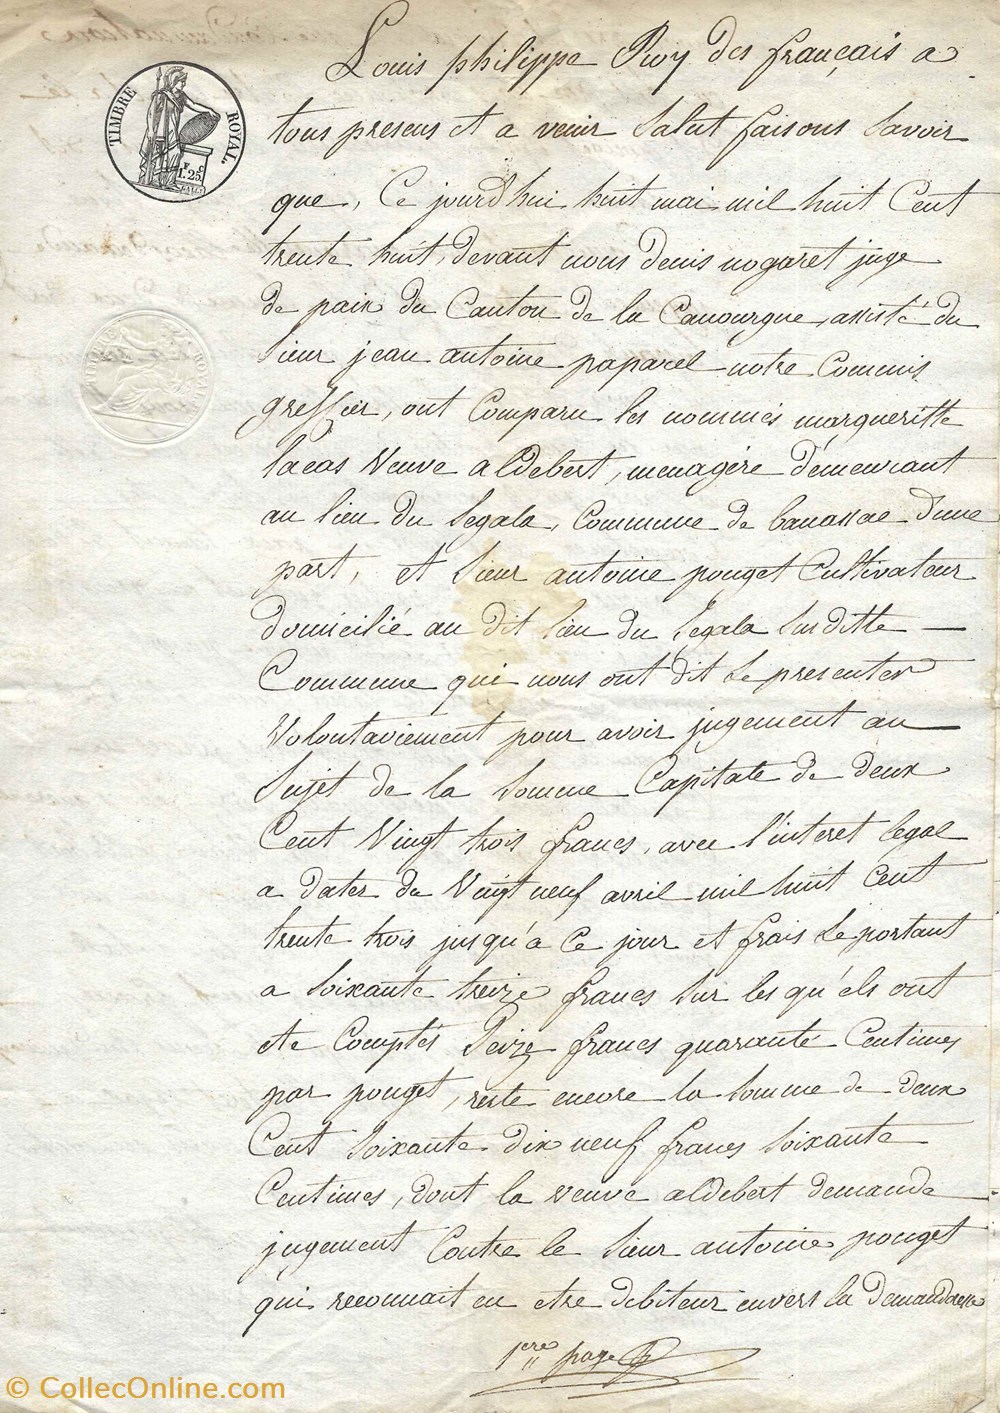 TIMBRE ROYAL.
1 F 25 C
Louis philippe Roy des français a
tous presens et a venir salut faisons savoir
que, Ce jourd'hui huit mai mil huit Cent
trente huit, devant nous denis nogaret juge
de paix du Canton de la Canourgue, assisté du
sieur jean antoine paparel notre Commis
greffier, ont Comparu les nommés margueritte
lacas Veuve aldebert, menagère demeurant
au lieu du Segala, Commune de banassac d'une
part, et sieur antoine pouget Cultivateur
domicilié au dit lieu du Segala susditte —
Commune qui nous ont dit se presenter
Volontairement pour avoir jugement au —
Sujet de la Somme Capitale de deux
Cent Vingt trois francs, avec l'interet legal
a dater du Vingt neuf avril mil huit Cent
trente trois jusqu'a ce jour et frais se portant
a Soixante treize francs sur les qu'els ont
ete Comptés Seize francs quarante Centimes
par pouget, reste encore la somme de deux
Cent Soixante dix neuf francs Soixante
Centimes, dont la veuve aldebert demande
jugement Contre le sieur antoine pouget
qui reconnait en etre debiteur envers la demanderesse
1ere page
© CollecOnline.com